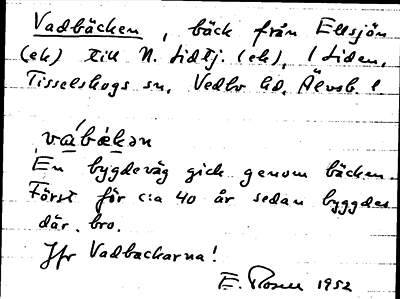 Vadbäcken, bäck från Ellsjön
(ek) till N. Lidtj. (ek), i Liden,
Tisselskogs sn, Vedbo hd, Älvsb. l
vá̱bä̱kən
En bygdeväg gick genom bäcken.
Först för c:a 40 år sedan byggdes
där bro.
Jfr Vadbackarna!
E. Rosell 1952